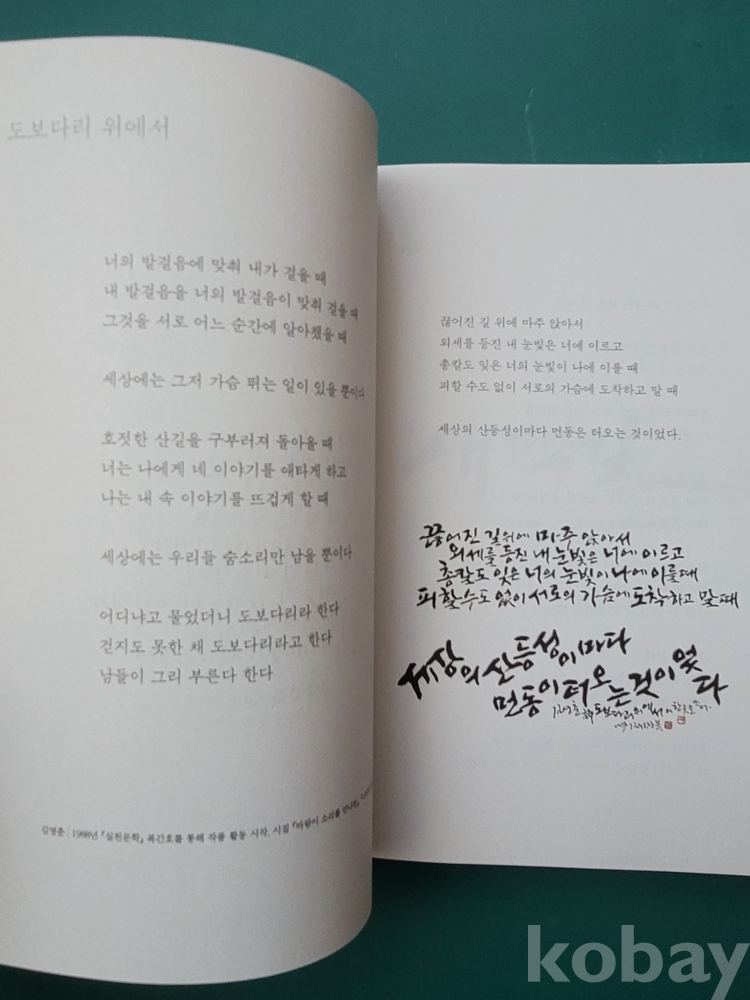 도보다리 위에서
너의 발걸음에 맞춰 내가 걸을 때
내 발걸음을 너의 발걸음이 맞춰 걸을 때
그것을 서로 어느 순간에 알아챘을 때
세상에는 그저 가슴 뛰는 일이 있을 뿐이다
호젓한 산길을 구부러져 돌아올 때
너는 나에게 네 이야기를 애타게 하고
나는 내 속 이야기를 뜨겁게 할 때
세상에는 우리들 숨소리만 남을 뿐이다
어디냐고 물었더니 도보다리라 한다
걷지도 못한 채 도보다리라고 한다
남들이 그리 부른다 한다
김영춘 | 1988년 『실천문학』 복간호를 통해 작품 활동 시작. 시집 『바람이 소리를 만나면』
끊어진 길 위에 마주 앉아서
외세를 등진 내 눈빛은 너에 이르고
총칼도 잊은 너의 눈빛이 나에 이를 때
피할 수도 없이 서로의 가슴에 도착하고 말 때
세상의 산등성이마다 먼동은 터오는 것이었다.
끊어진 길위에 마주 앉아서
외세를 등진 내 눈빛은 너에 이르고
총칼도 잊은 너의 눈빛이 나에 이를때
피할수도 없이 서로의 가슴에 도착하고 말때
세상의 산등성이마다
먼동이 터오는 것이었다
김영춘 詩 도보다리 위에서
kobay